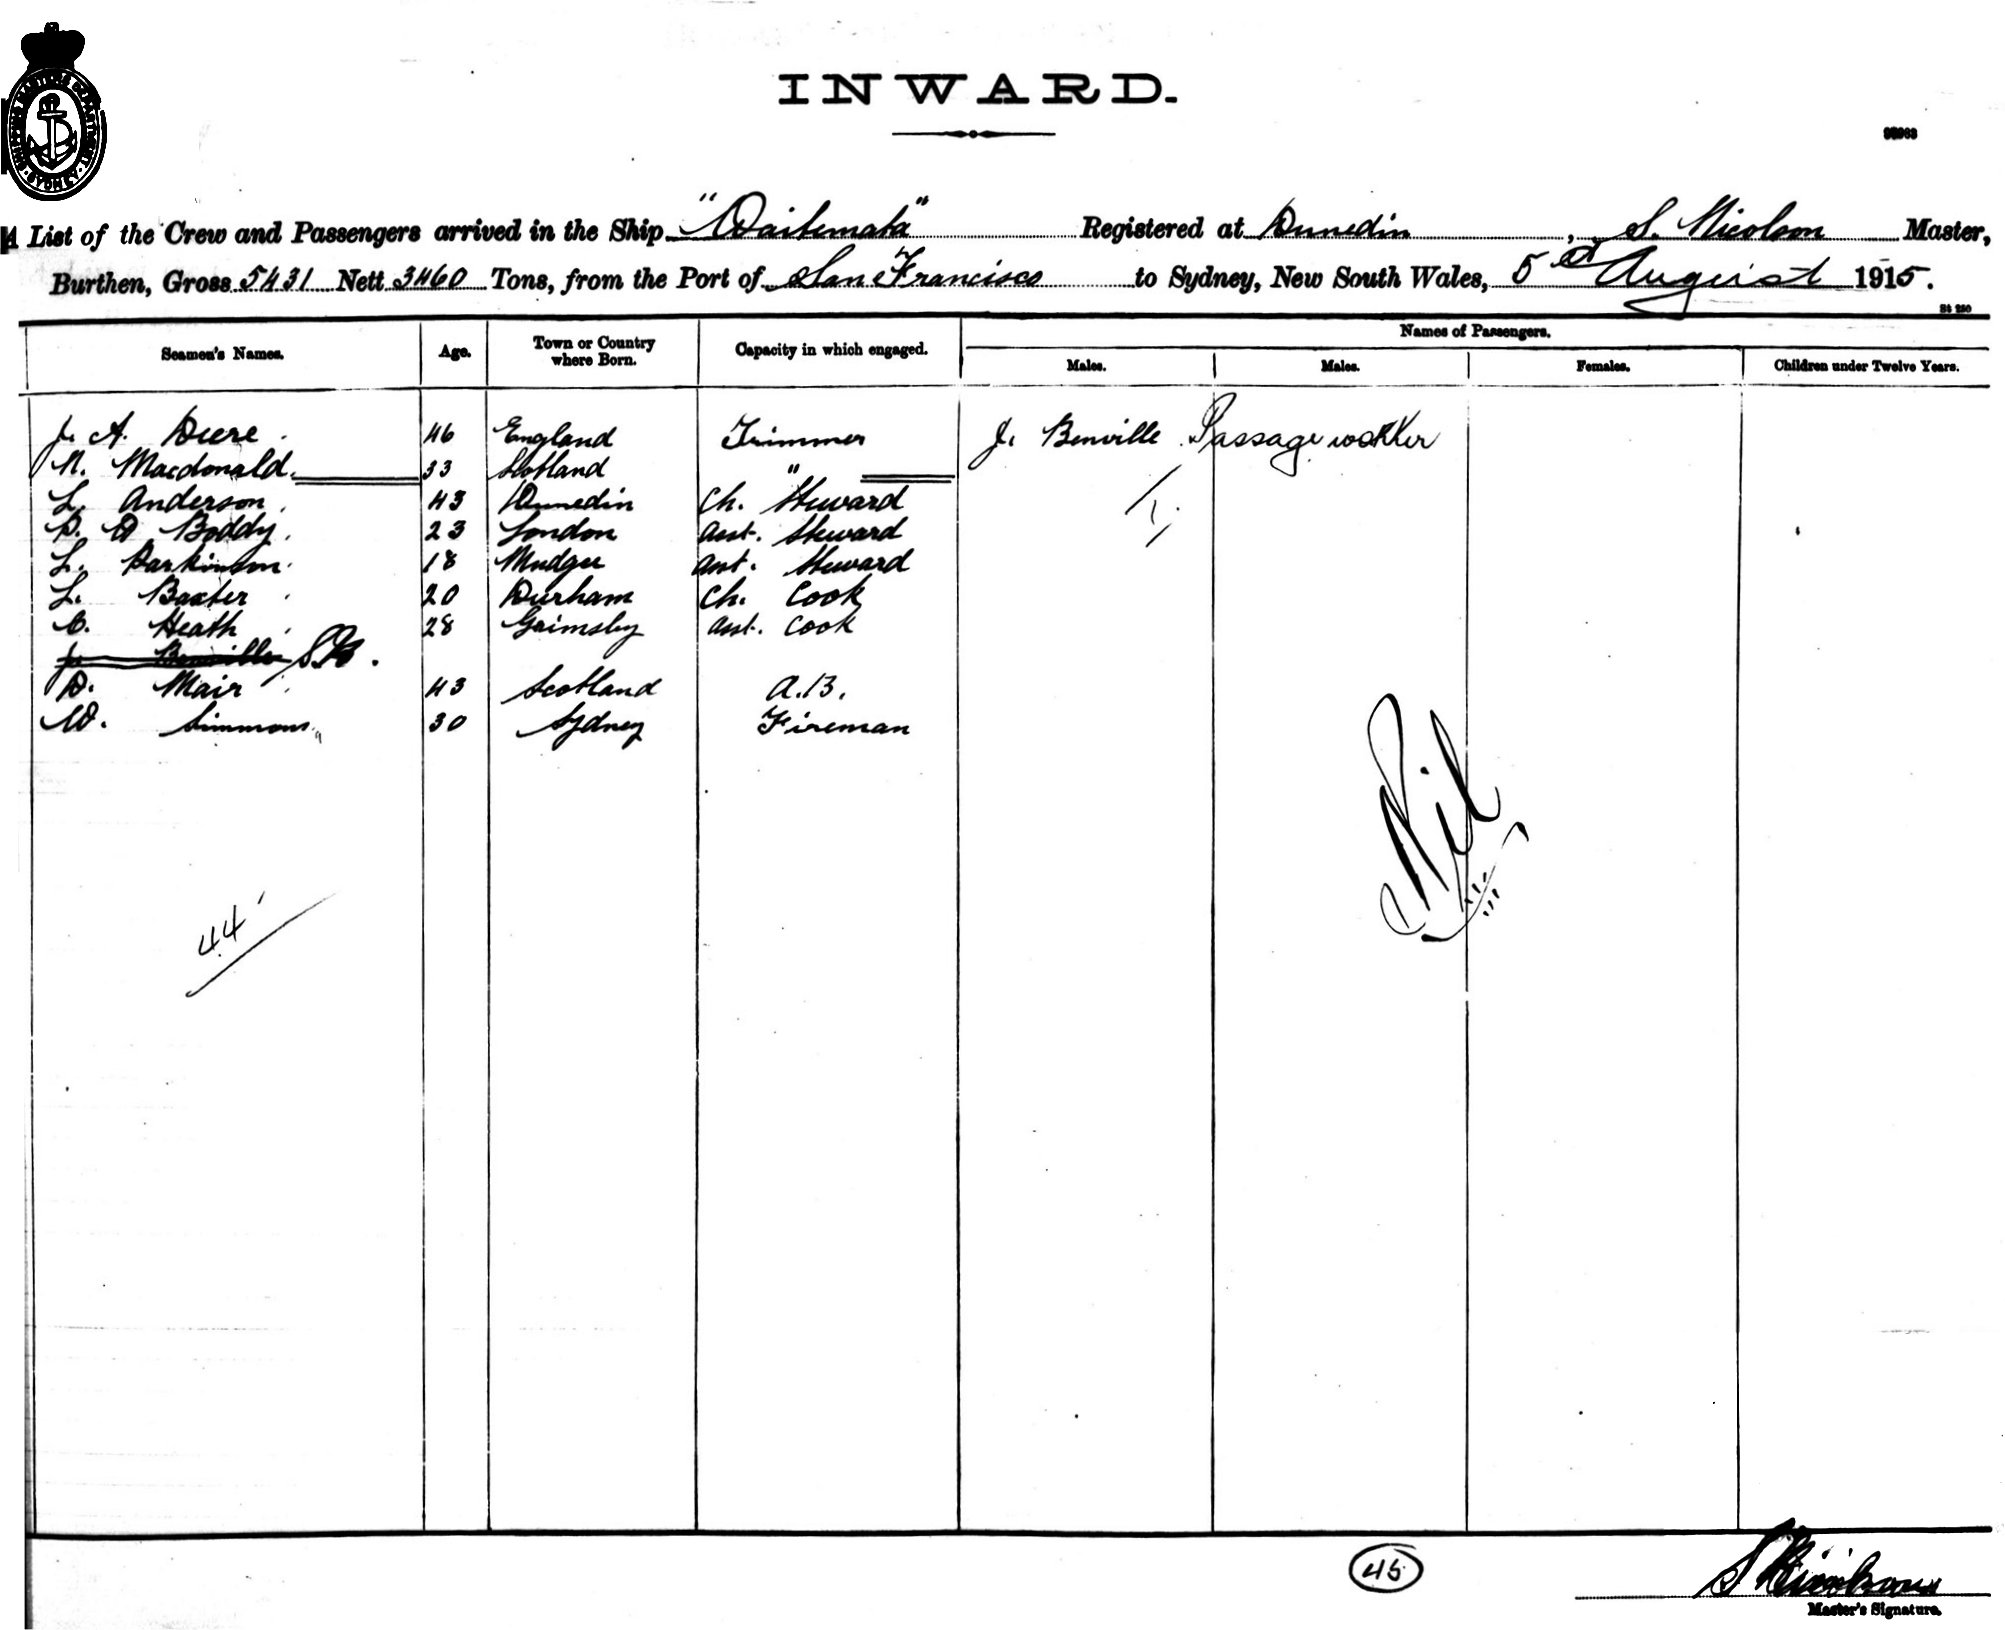 SHIPPING MASTER'S DEPARTMENT SYDNEY
INWARD.
A List of the Crew and Passengers arrived in the Ship "Waitemata" Registered at Dunedin, S. Nicolson Master,
Burthen, Gross 5431 Nett 3460 Tons, from the Port of San Francisco to Sydney, New South Wales, 5th August 1915.
St 250
Names of Passengers.
Seamen's Names. Age. Town or Country where Born. Capacity in which engaged. Males. Males. Females. Children under Twelve Years.
J. A. Deere 46 England Trimmer J. Benville Passage worker
N. Macdonald 33 Scotland "
L. Anderson 43 Dunedin Ch. Steward
D. D Boddy 23 London Asst. Steward
L. Parkinson 18 Mudgee Asst. Steward
L. Baxter 20 Durham Ch. Cook
C. Heath 28 Grimsby Asst. Cook
J. Benville
D. Mair 43 Scotland A.B.
W. Simmons 30 Sydney Fireman
Nil
44
45
Master's Signature.